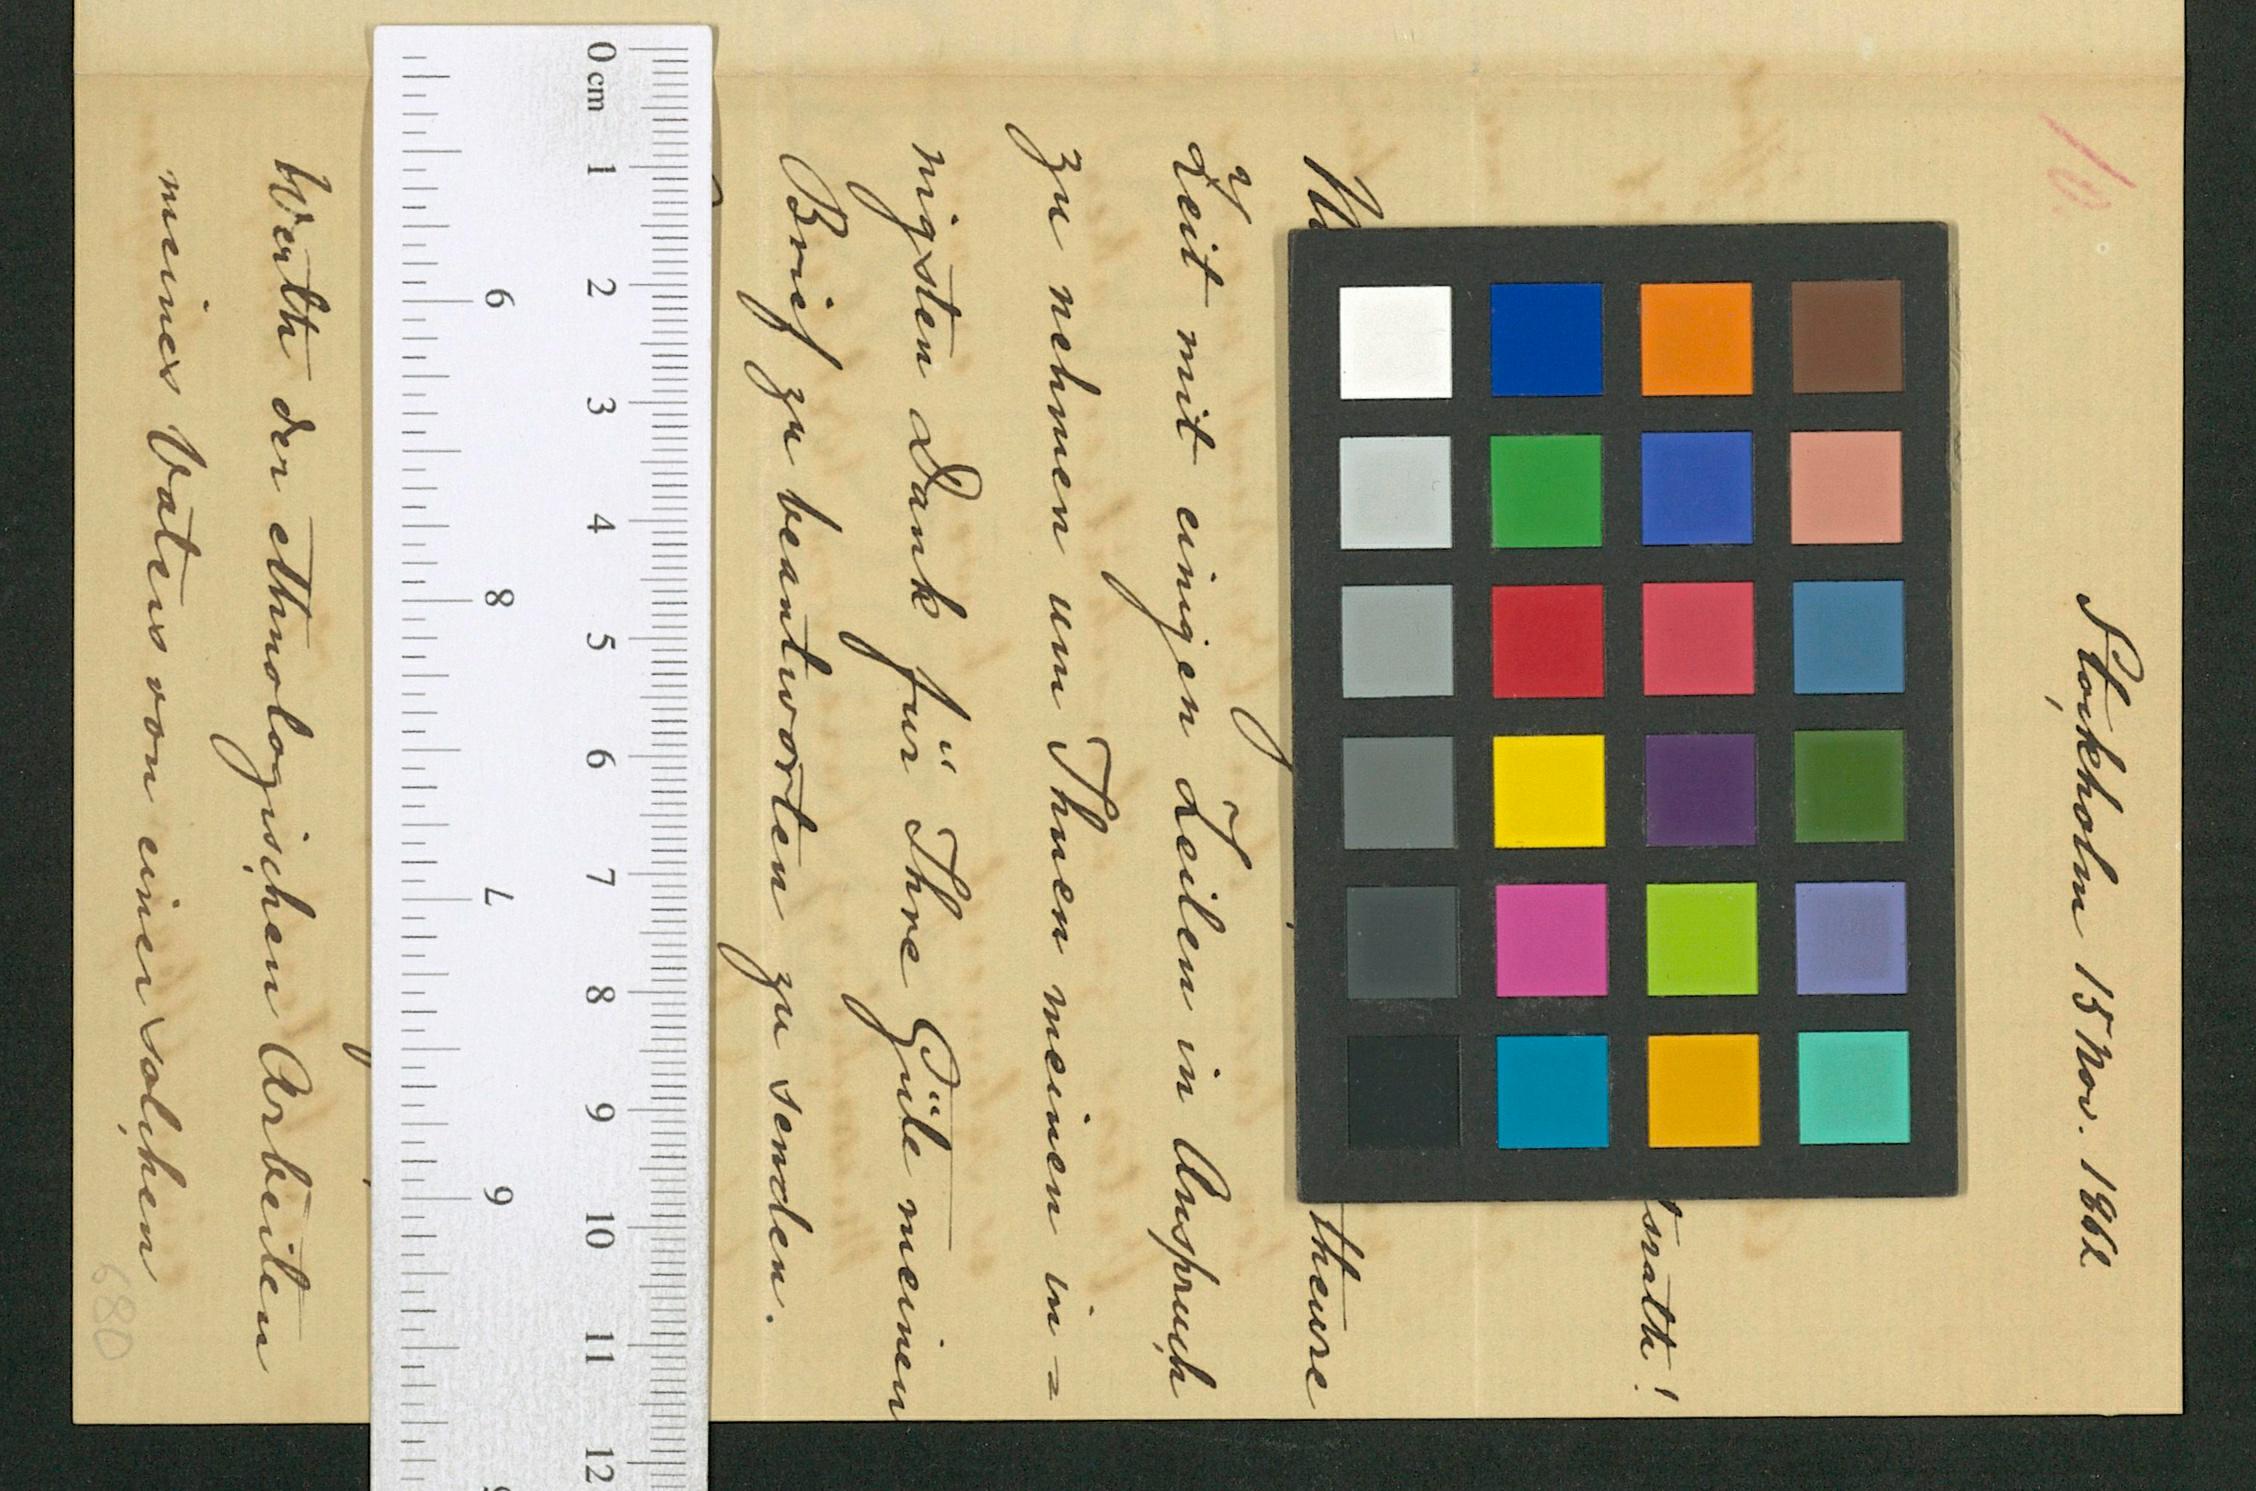 10.
Stockholm 15 Nov. 1862
tsrath!
theure
Zeit mit einigen Zeilen in Anspruch
zu nehmen um Ihnen meinen in=
nigsten Dank für Ihre Güte meinen
Brief zu beantworten zu senden.
Werth der ethnologischen Arbeiten
meines Vaters von einer solchen
680
0 cm 1 2 3 4 5 6 7 8 9 10 11 12
6 8 7 9